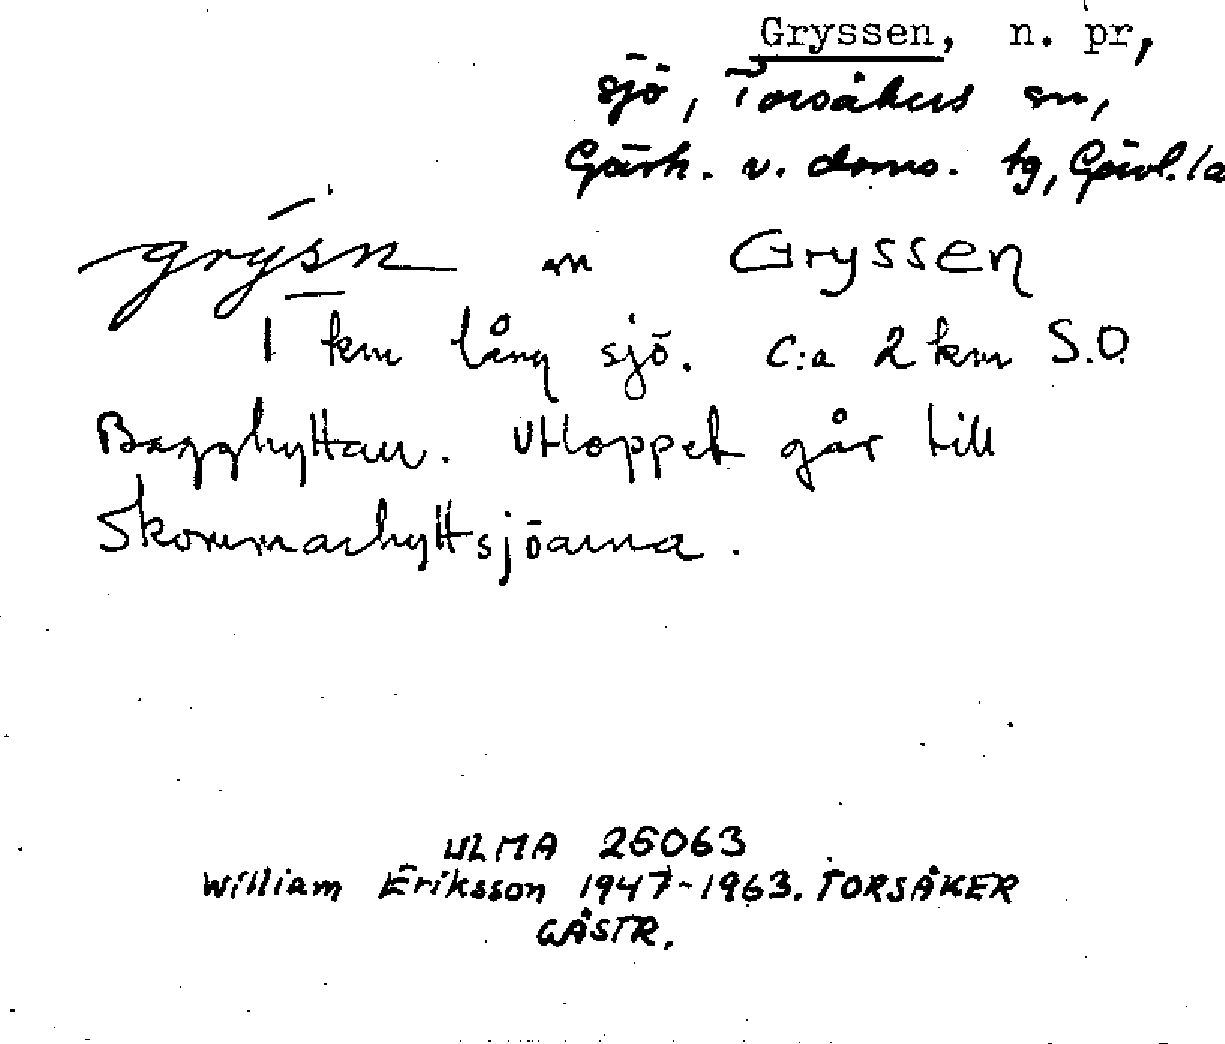 Gryssen, n. pr,
sjö, Torsåkers sn,
Gästr. v. doms. tg, Gävl. lä
grysn m Gryssen
1 km lång sjö. C:a 2 km S.O.
Bagghyttan. Utloppet går till
Skommarhyttsjöarna.
ULMA 26063
William Eriksson 1947-1963. TORSÅKER
GÄSTR.